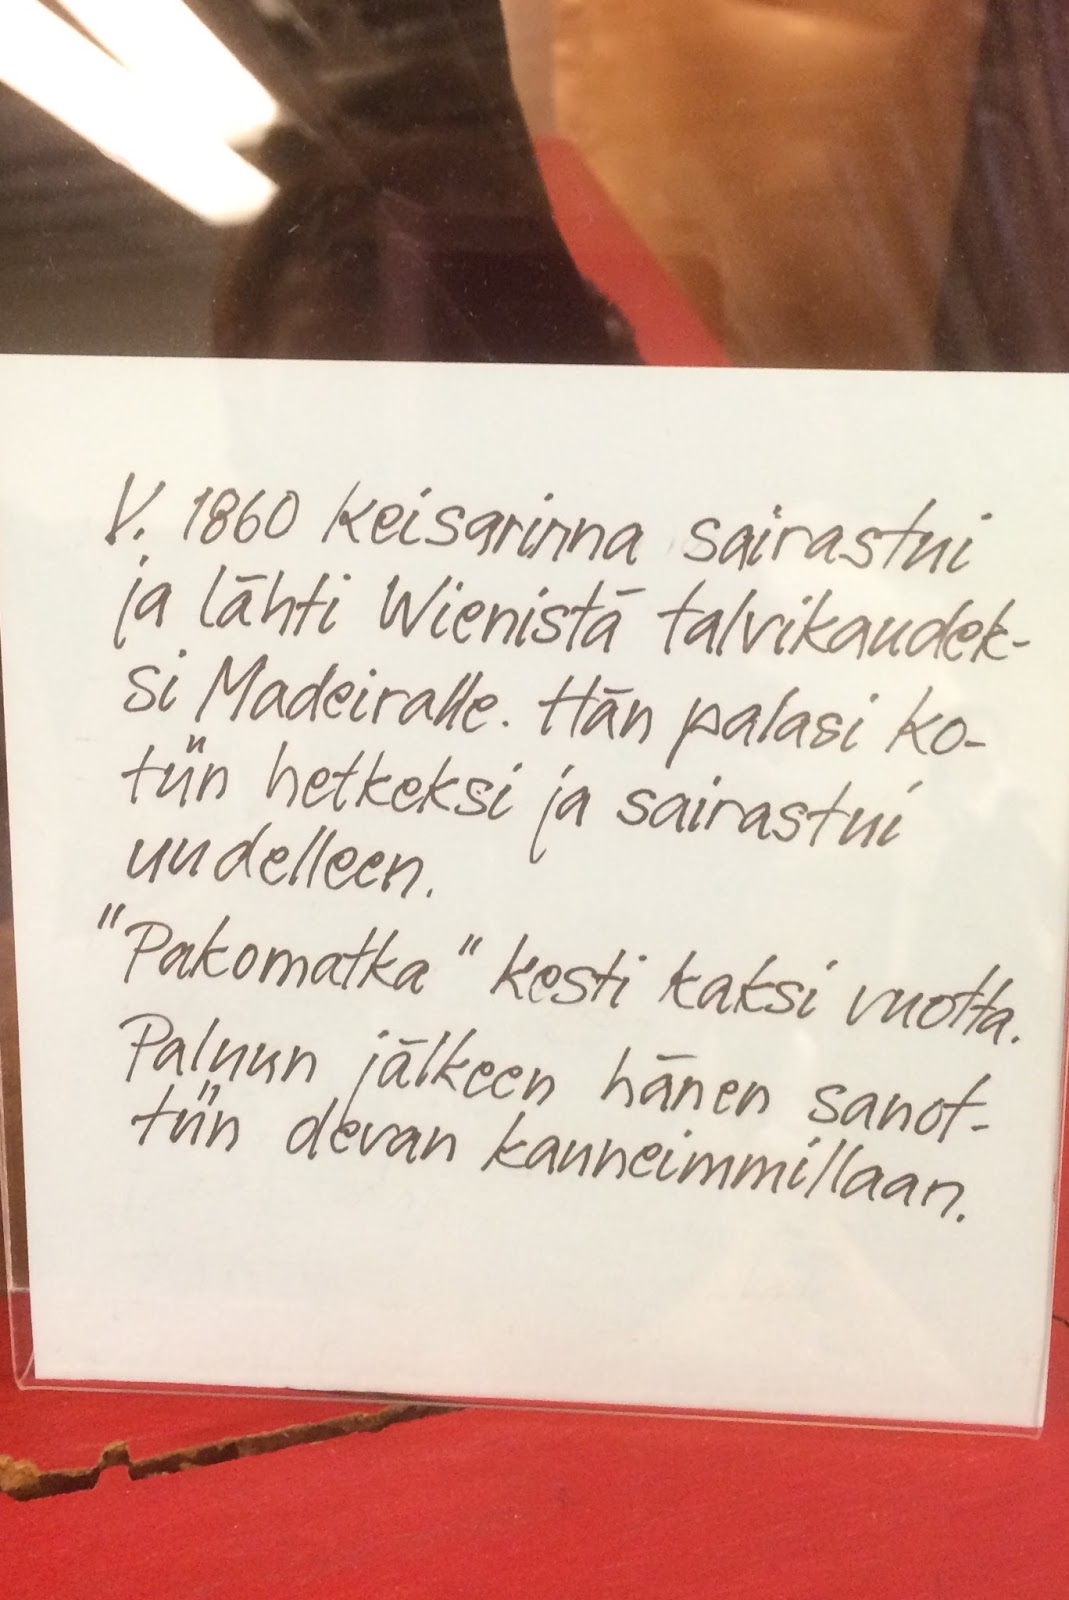 V. 1860 keisarinna sairastui
ja lähti Wienistä talvikaudek-
si Madeiralle. Hän palasi ko-
tiin hetkeksi ja sairastui
uudelleen.
"Pakomatka" kesti kaksi vuotta.
Paluun jälkeen hänen sanot-
tiin olevan kauneimmillaan.